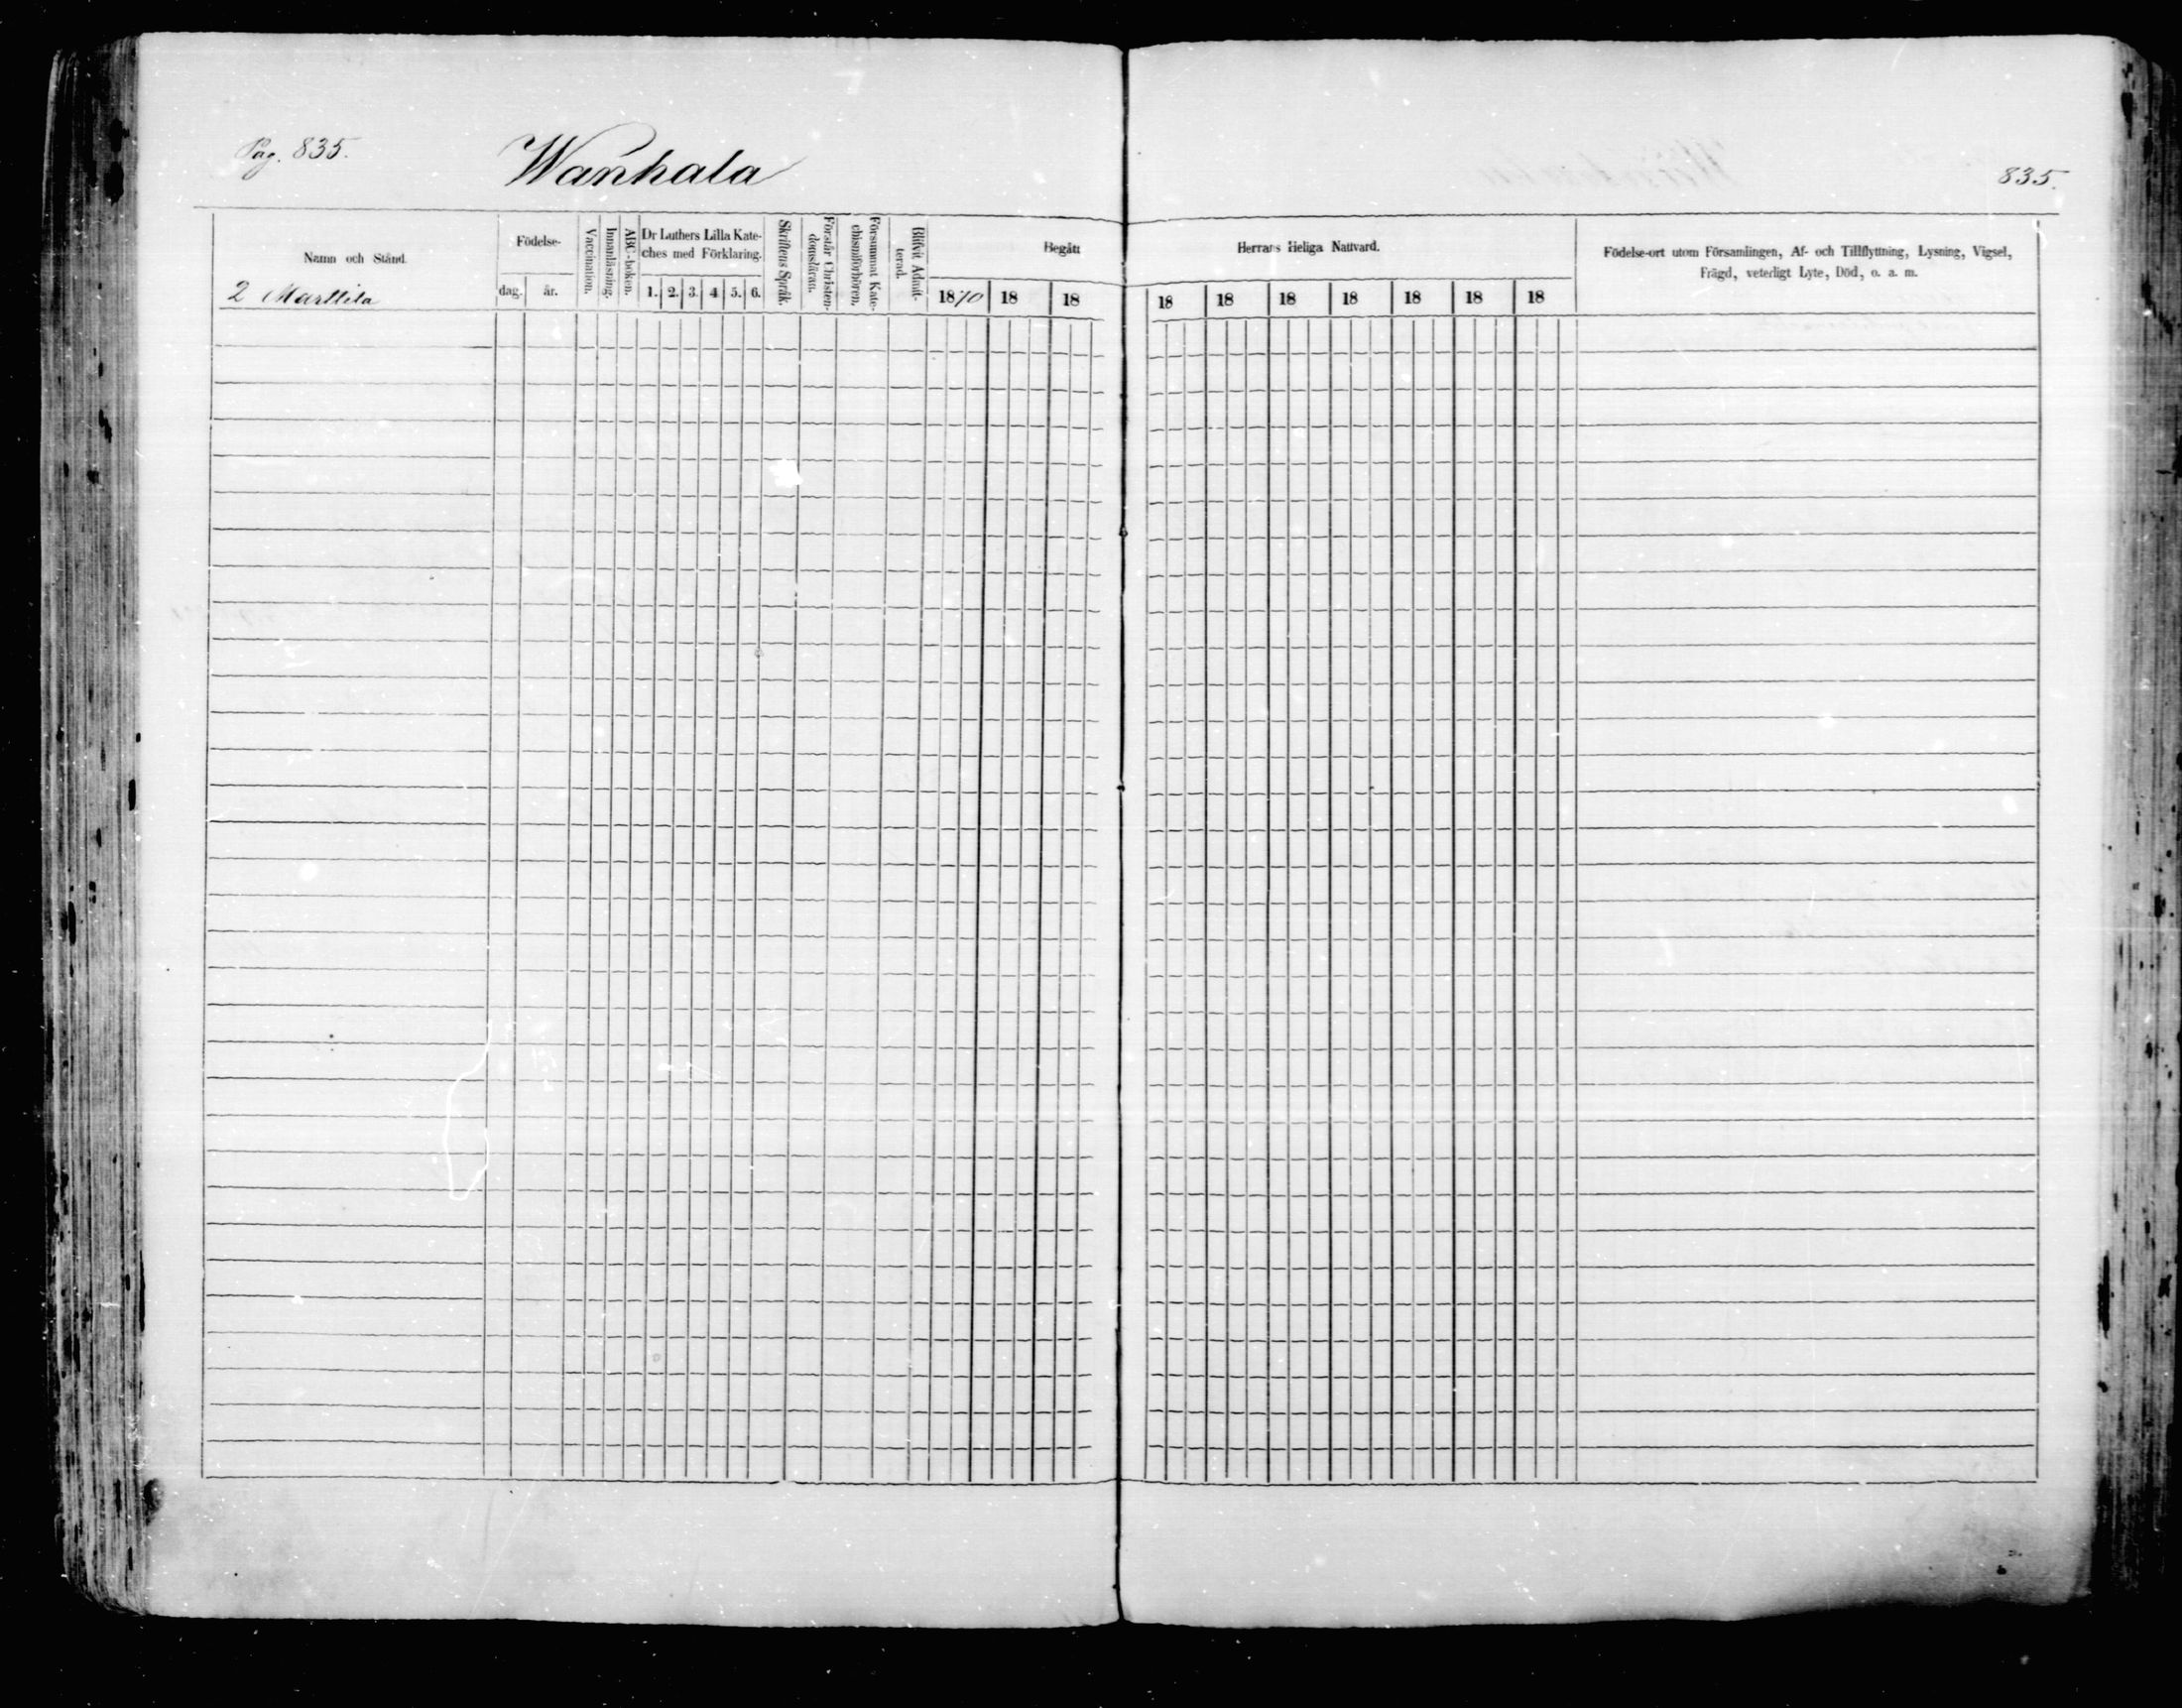 Pag. 835.
Wanhala
835.
Namn och Stånd.
2 Marttila
Födelse-
dag. år.
Vaccination.
Innanläsning.
ABC-boken.
Dr Luthers Lilla Kate-
ches med Förklaring.
1. 2. 3. 4 5. 6.
Skriftens Språk.
Förstår Christen-
domsläran.
Försummat Kate-
chismiförhören.
Blifvit Admit-
terad.
Begått Herrans Heliga Nattvard.
1870 18 18 18 18 18 18 18 18 18
Födelse-ort utom Församlingen, Af- och Tillflyttning, Lysning, Vigsel,
Frägd, veterligt Lyte, Död, o. a. m.